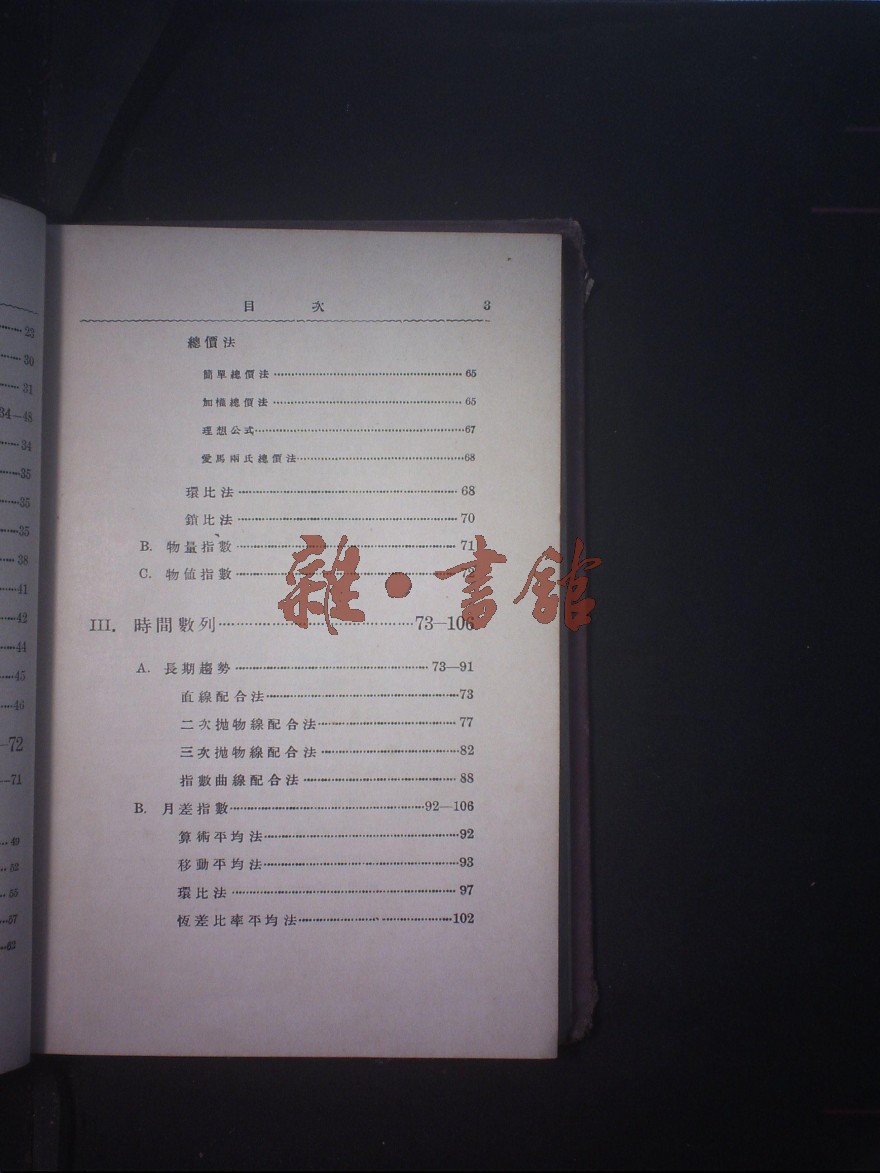 23
30
31
34—48
34
35
35
35
38
41
42
44
45
46
—72
—71
49
52
55
57
62
目 次 3
總價法
簡單總價法 65
加權總價法 65
理想公式 67
愛馬兩氏總價法 68
環比法 68
鎖比法 70
B. 物量指數 71
C. 物値指數
III. 時間數列 73—106
A. 長期趨勢 73—91
直線配合法 73
二次抛物線配合法 77
三次抛物線配合法 82
指數曲線配合法 88
B. 月差指數 92—106
算術平均法 92
移動平均法 93
環比法 97
恆差比率平均法 102
雜·書館